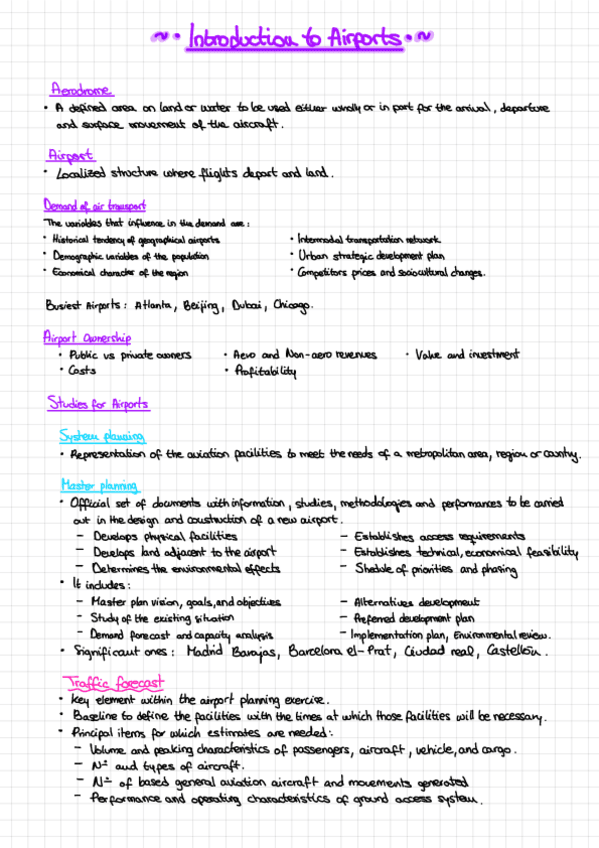 ~ • Introduction to Airports • ~
Aerodrome
• A defined area on land or water to be used either wholly or in part for the arrival, departure
and surface movement of the aircraft.
Airport
• Localized structure where flights depart and land.
Demand of air transport
The variables that influence in the demand are:
• Historical tendency of geographical airports
• Intermodal transportation network
• Demographic variables of the population
• Urban strategic development plan
• Economical character of the region
• Competitors prices and sociocultural changes.
Busiest Airports: Atlanta, Beijing, Dubai, Chicago.
Airport Ownership
• Public vs private owners
• Aero and Non-aero revenues
• Value and investment
• Costs
• Profitability
Studies for Airports
System planning
• Representation of the aviation facilities to meet the needs of a metropolitan area, region or country.
Master planning
• Official set of documents with information, studies, methodologies and performances to be carried
out in the design and construction of a new airport.
– Develops physical facilities
– Establishes access requirements
– Develops land adjacent to the airport
– Establishes technical, economical feasibility
– Determines the environmental effects
– Shedule of priorities and phasing
• It includes:
– Master plan vision, goals, and objectives
– Alternatives development
– Study of the existing situation
– Preferred development plan
– Demand forecast and capacity analysis
– Implementation plan, Environmental review.
• Significant ones: Madrid Barajas, Barcelona el-Prat, Ciudad real, Castellón.
Traffic forecast
• Key element within the airport planning exercise.
• Baseline to define the facilities with the times at which those facilities will be necessary.
• Principal items for which estimates are needed:
– Volume and peaking characteristics of passengers, aircraft, vehicle, and cargo.
– Nº and types of aircraft.
– Nº of based general aviation aircraft and movements generated
– Performance and operating characteristics of ground access system.